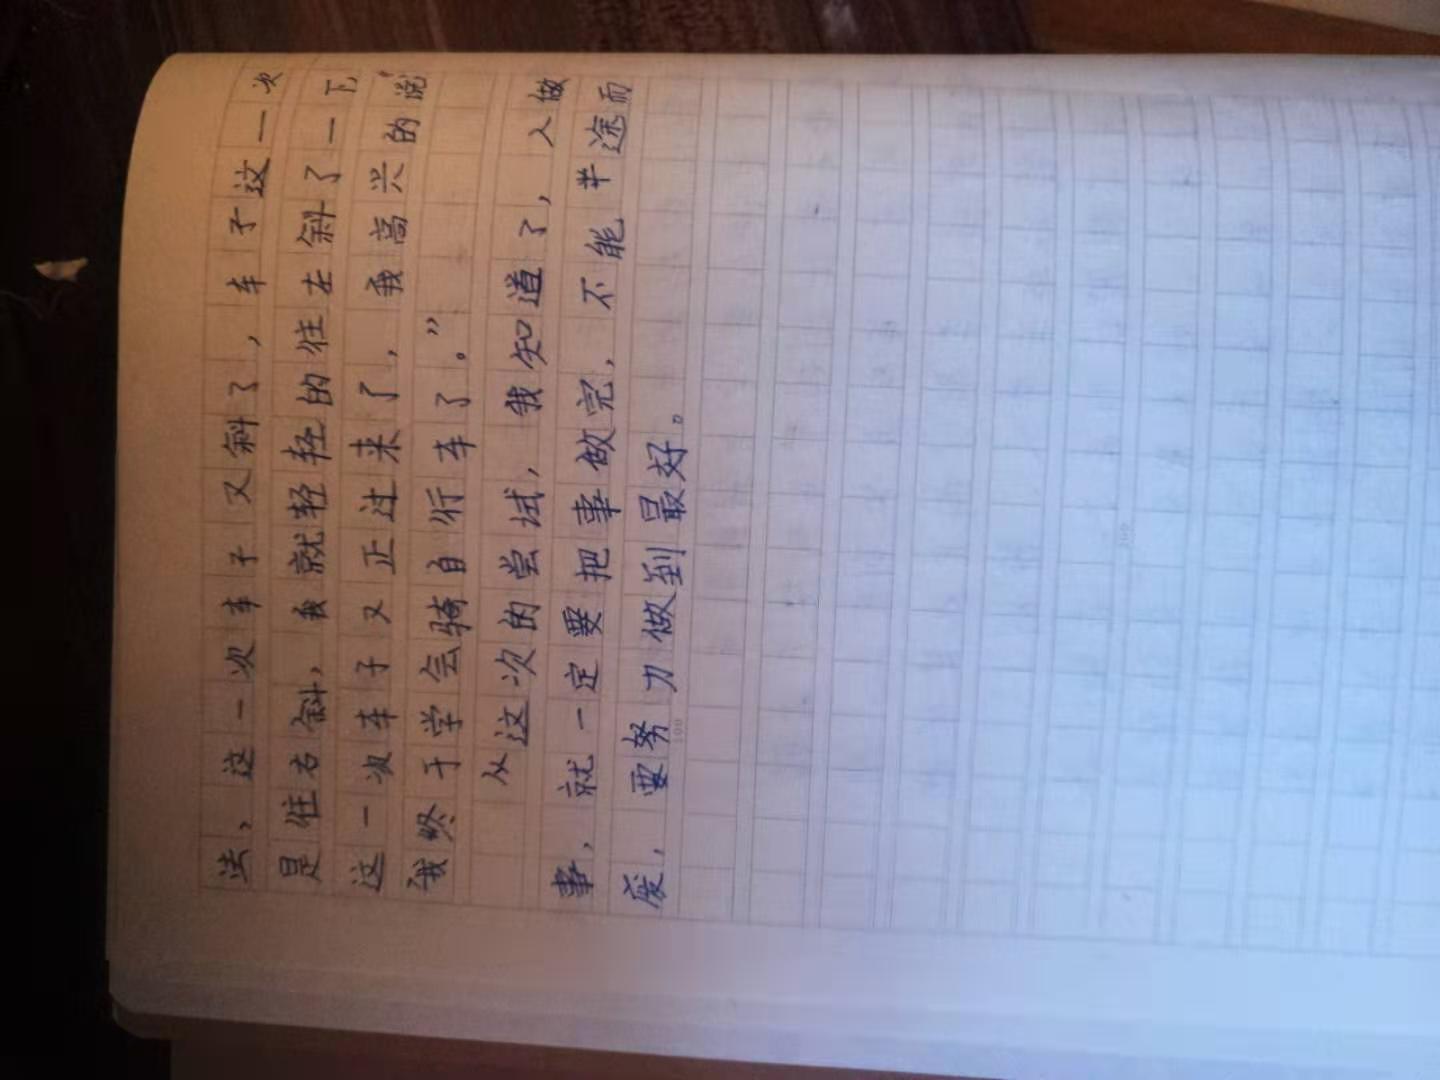 法，这一次车子又斜了，车子这一次
是往右斜，我就轻轻的往左斜了一下
这一次车子又正过来了，我高兴的说
我终于学会骑自行车了。”
从这次的尝试，我知道了，人做
事，就一定要把事做完，不能半途而
废，要努力做到最好。
100
200